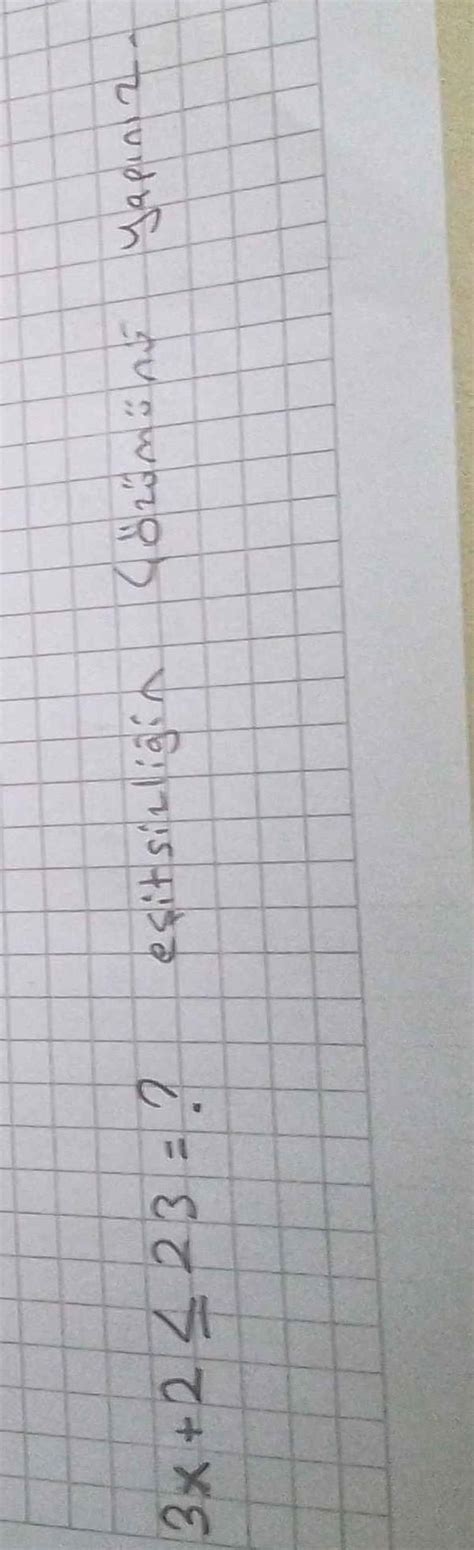 3x+2 ≤ 23 = ? eşitsizliğin Çözümünü yapınız.